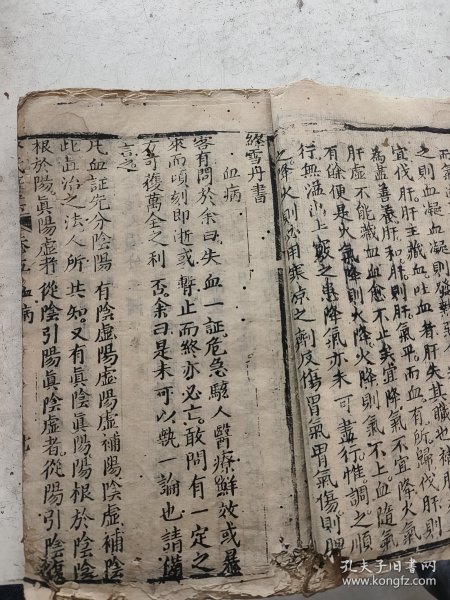 之則血凝血凝則
宜伐肝肝主藏血吐血者肝失其職也
為益善養肝和肝則肝氣平而血有所歸伐肝則
肝虛不能藏血血愈不止矣宜降氣不宜降火氣
有餘便是火氣降則火降火降則氣不上升血隨氣
行無溢出上竅之患降氣亦未可盡行惟調之順
之降火則必用寒凉之劑反傷胃氣胃氣傷則脾
絳雪丹書
血病
客有問於余曰失血一証危急駭人醫療鮮效或暴
來而頃刻即逝或暫止而終亦必亡敢問有一定之
方可復萬全之利否余曰是未可以執一論也請備
言之
此血証先分陰陽有陰虛陽虛陽虛補陽陰虛補陰
此直治之法人所共知又有真陰真陽陽根於陰陰
根於陽真陽虛者從陰引陽真陰虛者從陽引陰
血病
孔夫子旧书网
book.kongfz.com